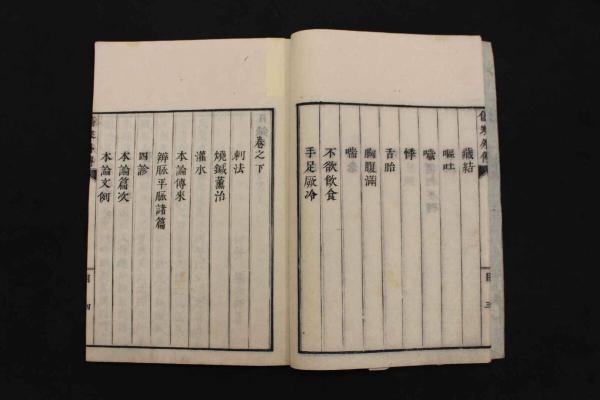 藏結
嘔吐
噦
悸
舌胎
胸腹滿
喘
不欲飲食
手足厥冷
目 三
卷之下
刺法
燒鍼薰治
灌水
本論傳來
辨脈平脈諸篇
四診
本論篇次
本論文例
目 四